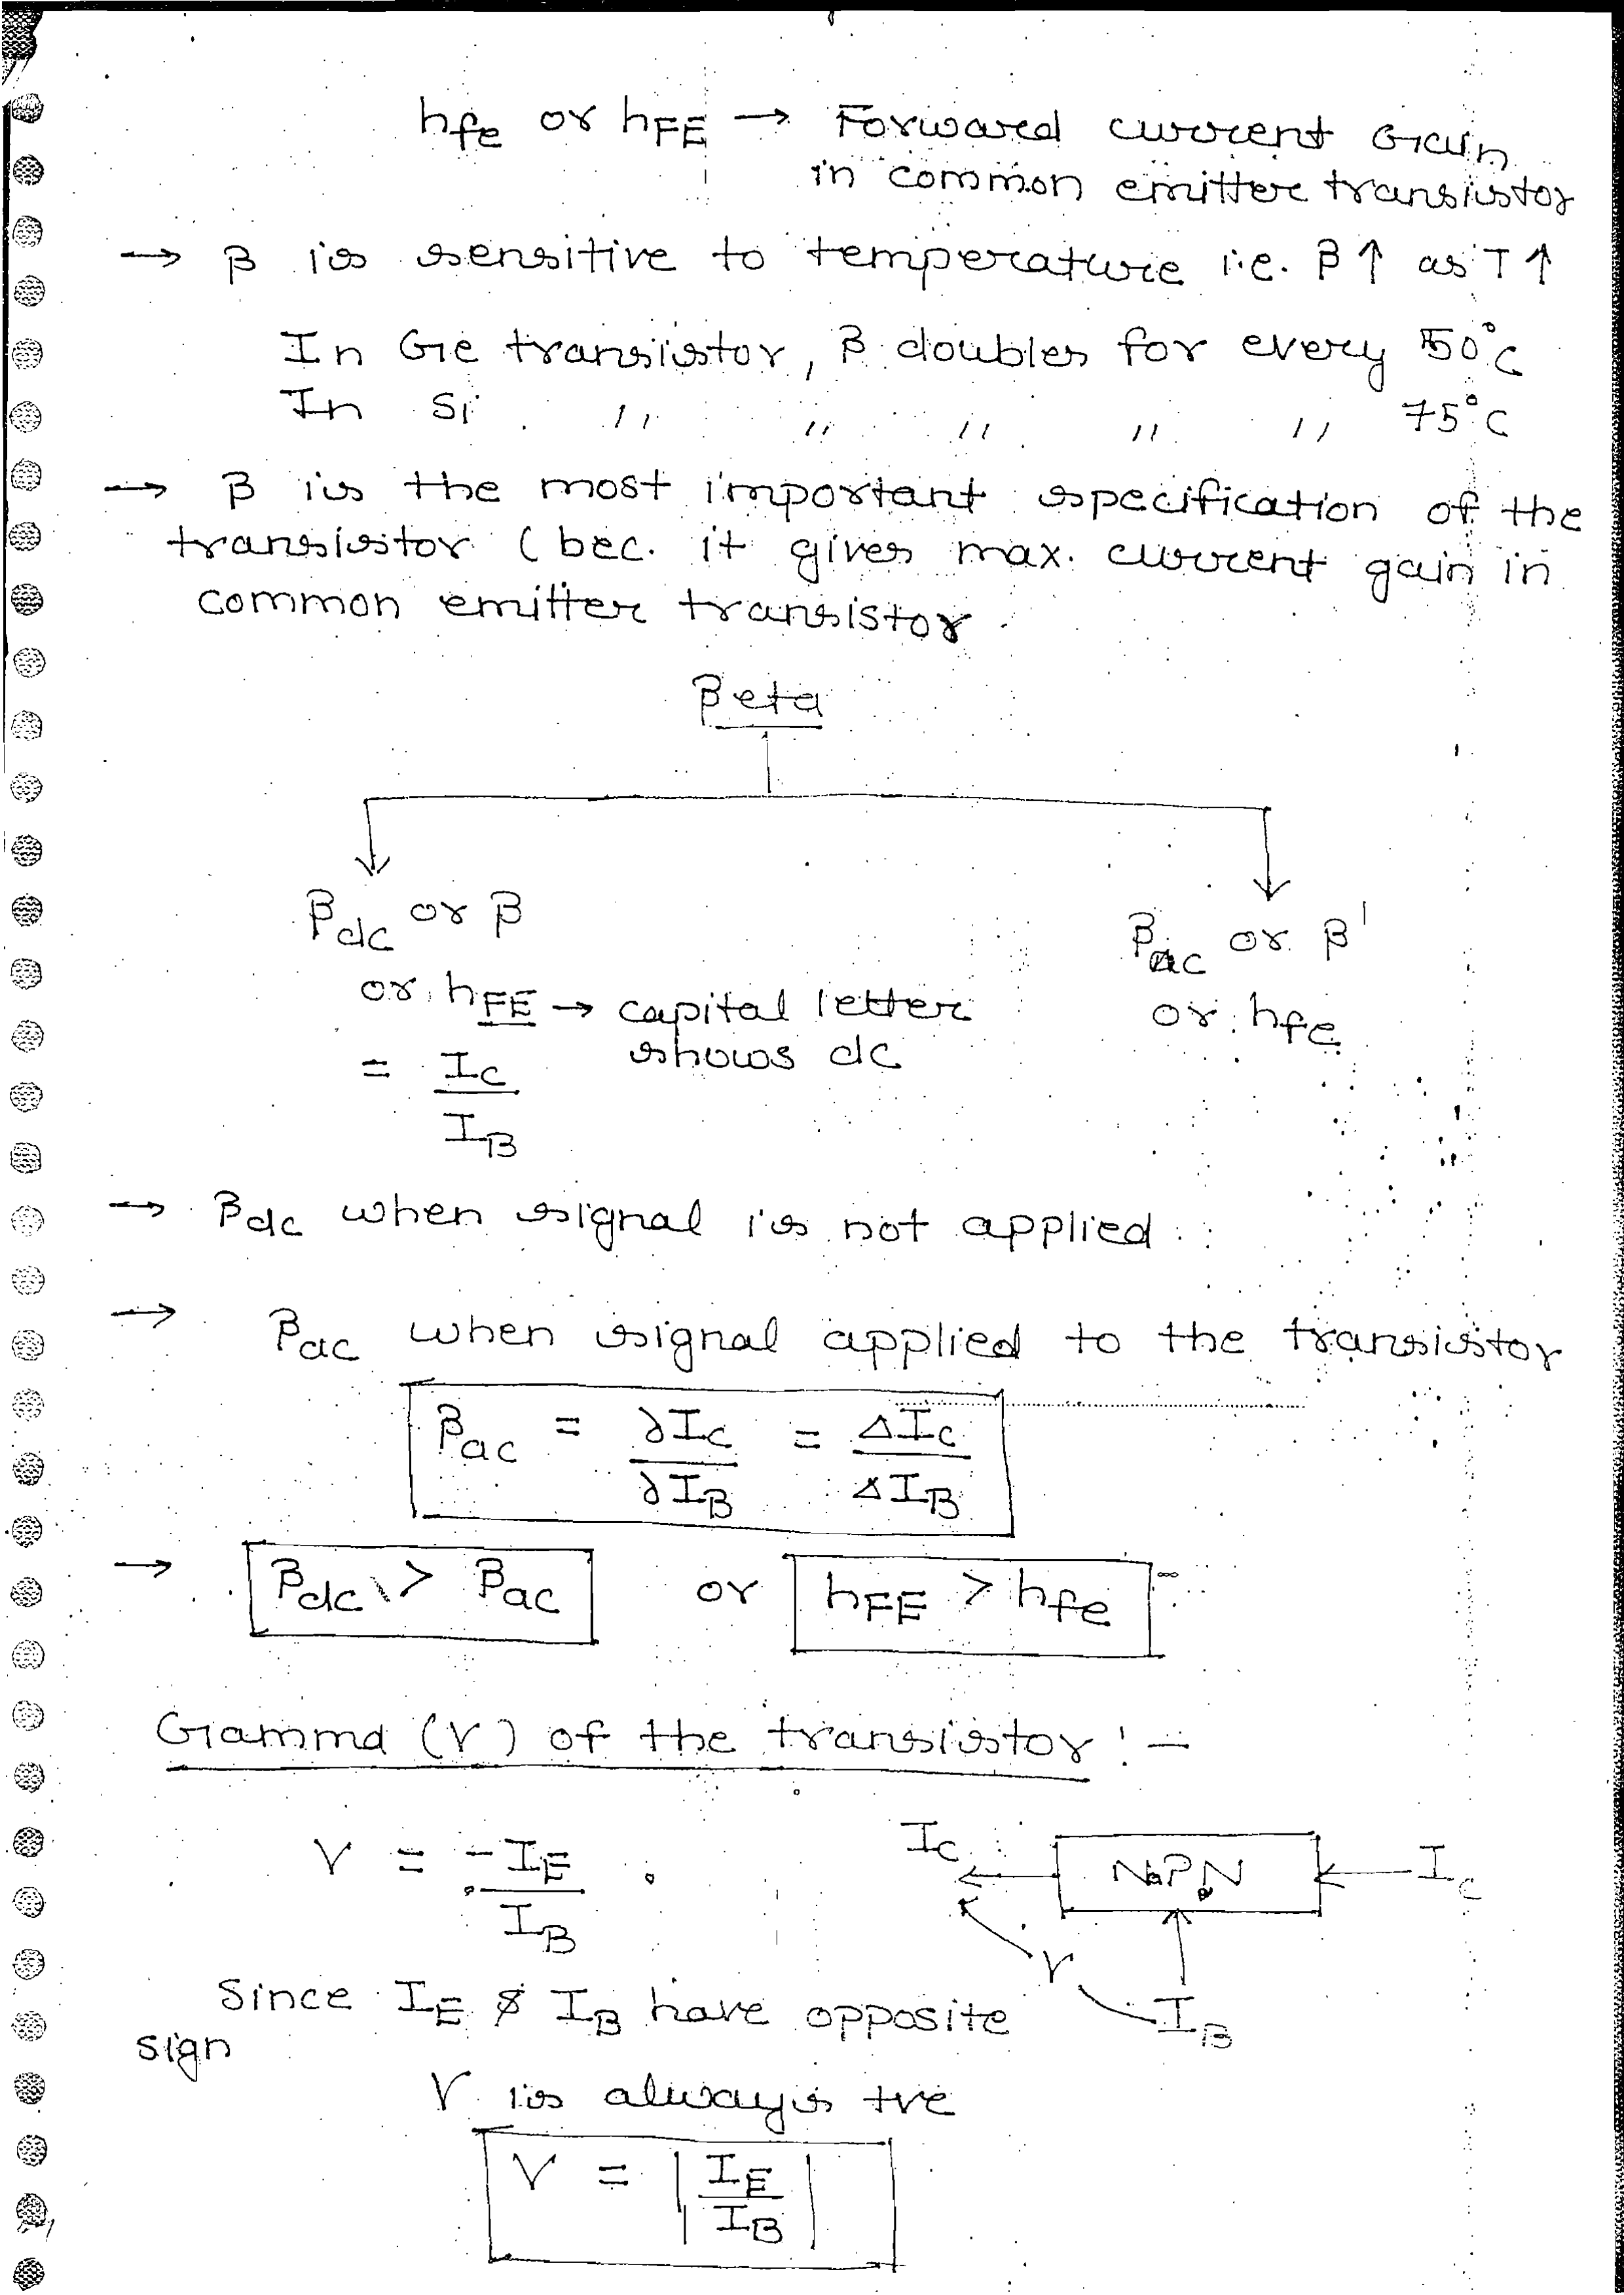 hfe or hFE → Forward current Gain
in common emitter transistor
→ β is sensitive to temperature i.e. β↑ as T↑
In Ge transistor, β doubles for every 50°C
In Si " " " " " 75°C
→ β is the most important specification of the
transistor (bec. it gives max. current gain in
common emitter transistor
Beta
βdc or β
or hFE → capital letter
shows dc
= IC / IB
βac or β'
or hfe
→ βdc when signal is not applied
→ βac when signal applied to the transistor
βac = ∂IC / ∂IB = ΔIC / ΔIB
→ βdc > βac or hFE > hfe
Gamma (γ) of the transistor :-
γ = -IE / IB
IC ← NPN ← IC
γ
IB
Since IE & IB have opposite
sign
γ is always +ve
γ = | IE / IB |